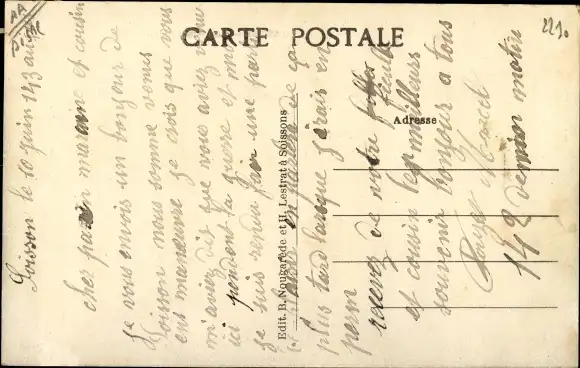 CARTE POSTALE
Adresse
Edit. B. Nougarède et H. Lestrat à Soissons
221.
Soisson le 10 juin
cher parrin maraine et cousin
Je vous envois un bonjour de
Soisson nous somme venus
ens manœuvre je crois que vous
m'aviez dis que vous aviez
ici pendent la guerre et moi
je suis rendu fair une
plus tard lorsque j'érais en
perm
recevez de votre filleuls
et cousin les meilleurs
souvenir bonjour a tous
Marcel
142 demain matin